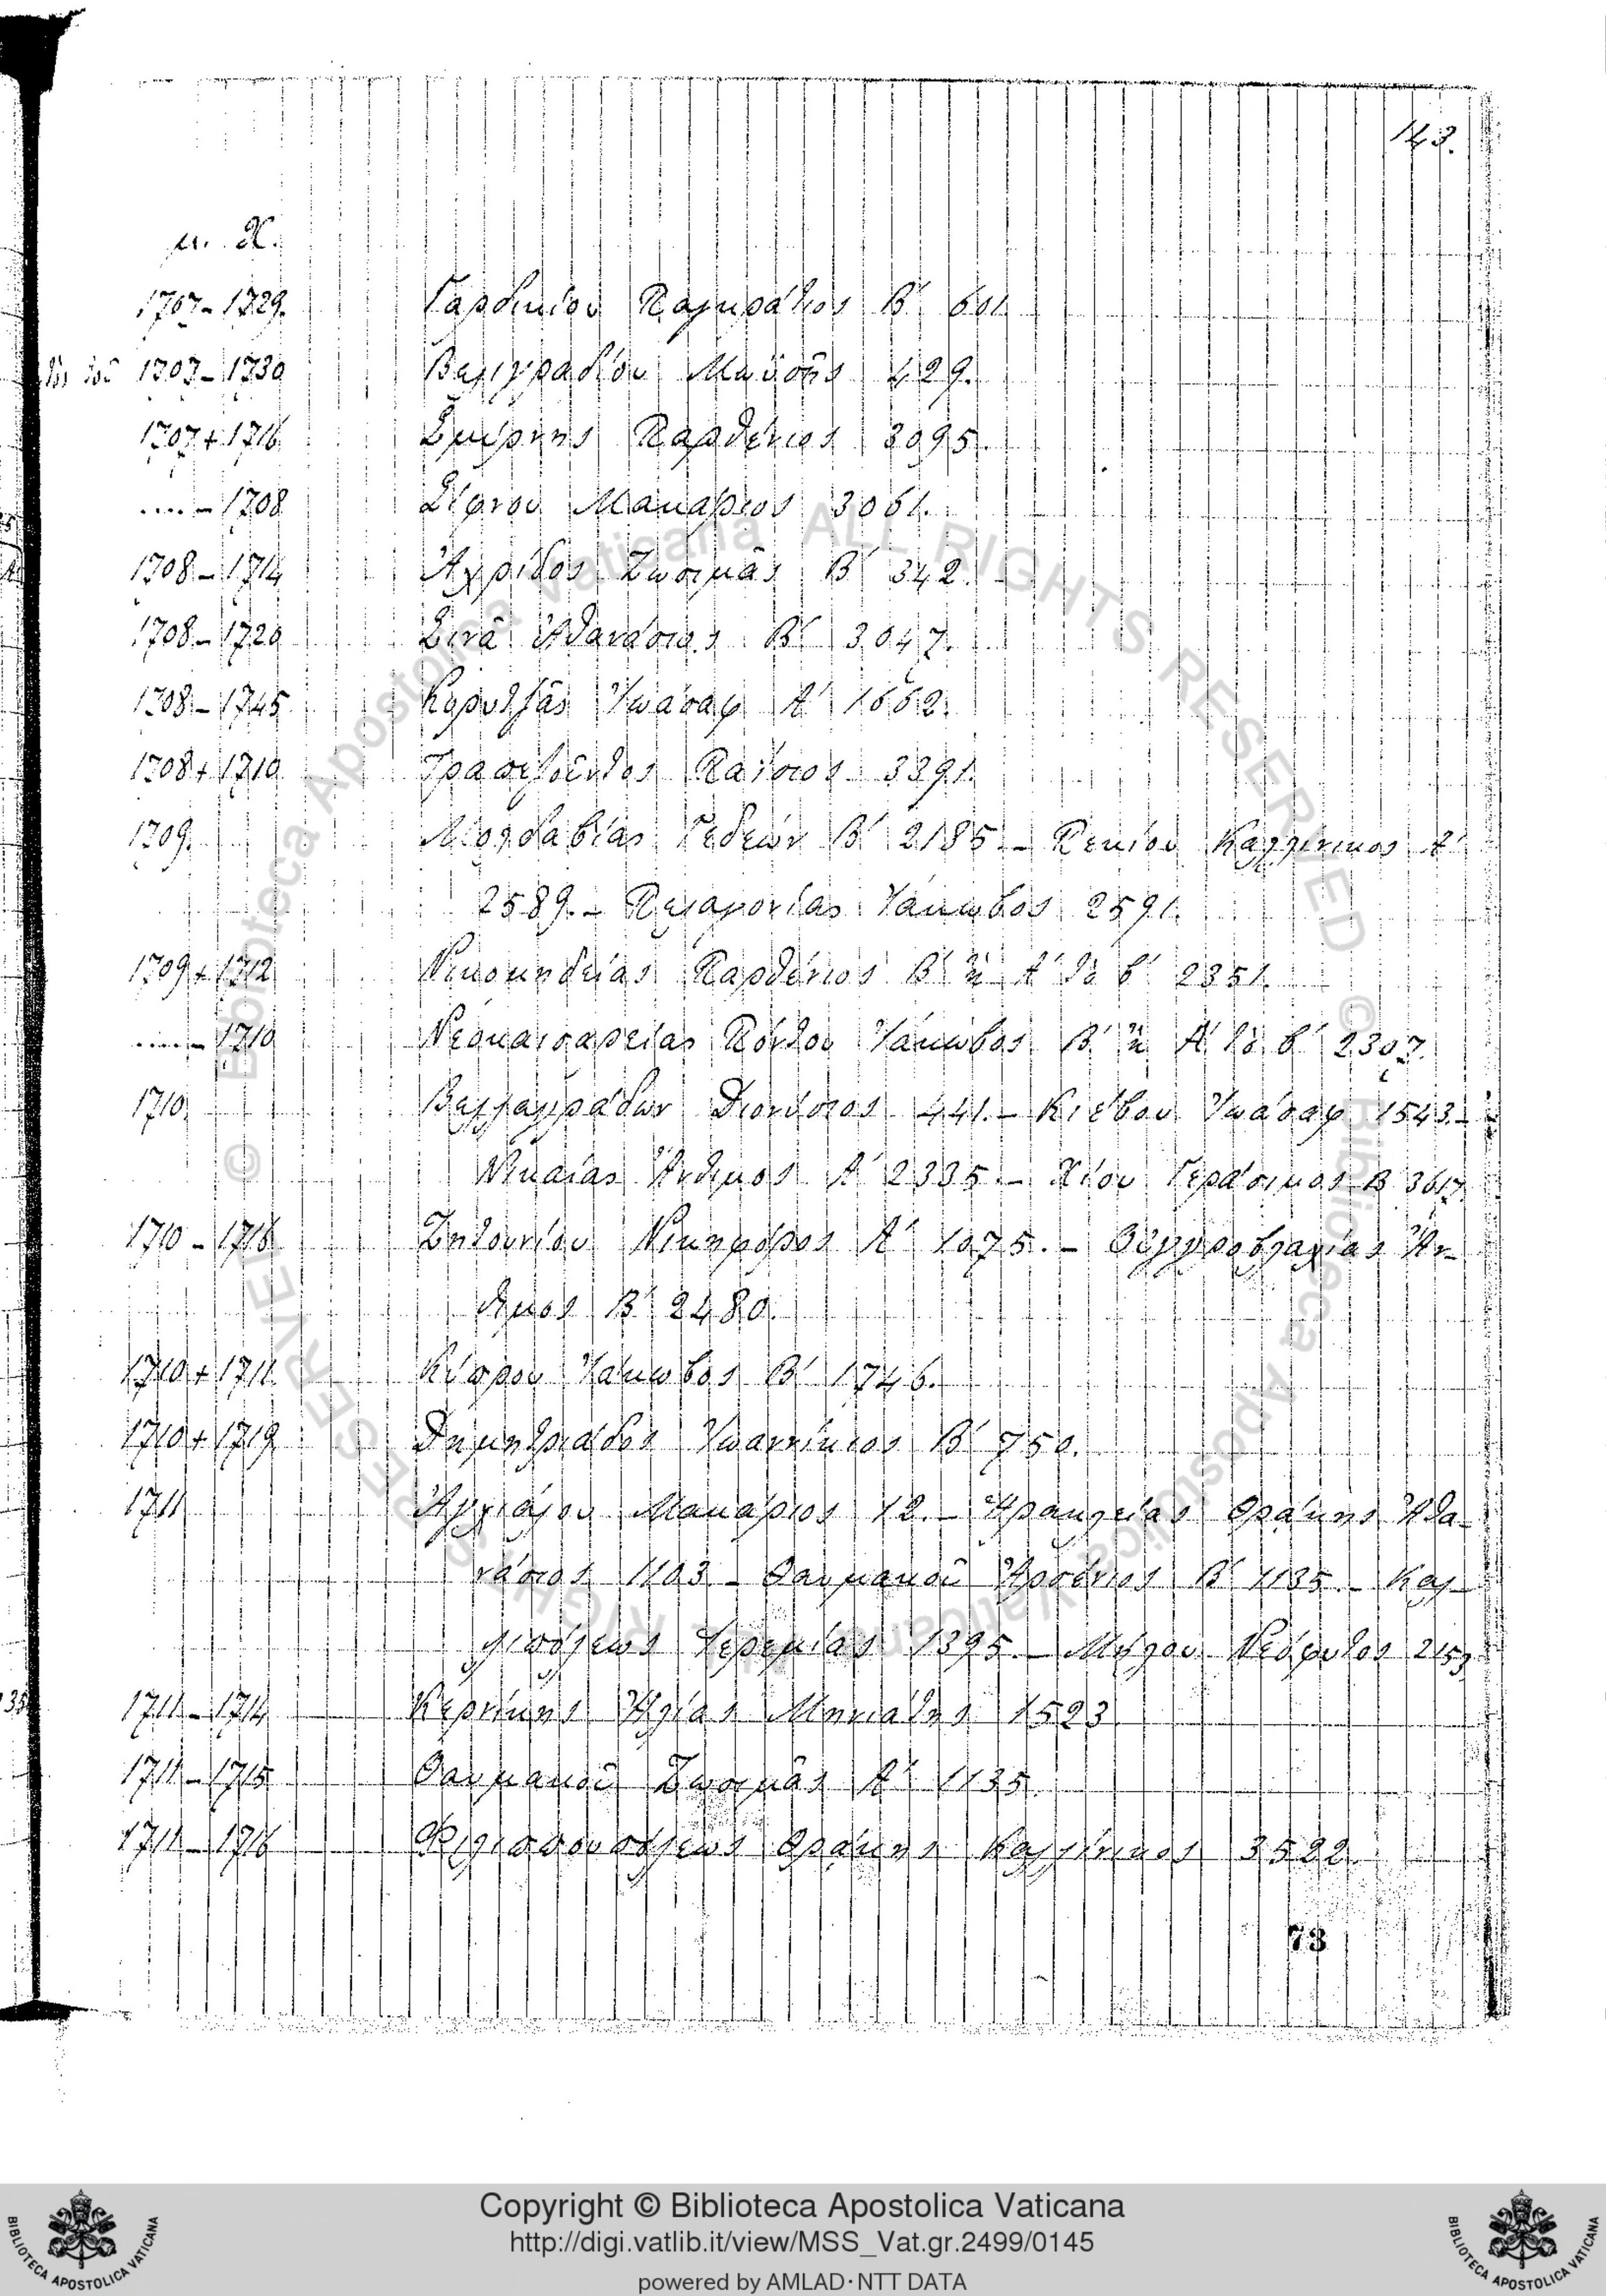 143.
μ. Χ.
1707-1729. Γαρδικίου Παγκράτιος Β' 601
1707-1730 Βελιγραδίου Μωϋσῆς 429.
1707+1716 Σμύρνης Παρθένιος 3095.
....-1708 Σίφνου Μακάριος 3061.
1708-1714 Ἀχρίδος Ζωσιμᾶς Β' 342.
1708-1720 Σινᾶ Ἀθανάσιος Β' 3047.
1708-1745 Κορυτσᾶς Ἰωάσαφ Α' 1662.
1708+1710 Τραπεζοῦντος Παΐσιος 3391.
1709. Μολδαβίας Γεδεών Β' 2185.- Πεκίου Καλλίνικος Α'
2589.- Πελαγονίας Ἰάκωβος 2591.
1709+1712 Νικομηδείας Παρθένιος Β' ἢ Α' τὸ β' 2351.
....-1710 Νεοκαισαρείας Πόντου Ἰάκωβος Β' ἢ Α' τὸ β' 2307.
1710. Βελλαγράδων Διονύσιος 441.- Κιέβου Ἰωάσαφ 1543.-
Νικαίας Ἄνθιμος Α' 2335.- Χίου Γεράσιμος Β 3617
1710-1716 Ζητουνίου Νικηφόρος Α' 1075.- Οὑγγροβλαχίας Ἄν-
θιμος Β' 2480.
1710+1711. Κύπρου Ἰάκωβος Β' 1746.
1710+1719 Δημητριάδος Ἰωαννίκιος Β' 750.
1711 Ἀγχιάλου Μακάριος 12.- Ἡρακλείας Θρᾴκης Ἀθα-
νάσιος 1103- Θαυμακοῦ Ἀρσένιος Β' 1135.- Καλ-
λιουπόλεως Ἱερεμίας 1395.- Μήλου Νεόφυτος 2159
1711-1714 Κερνίκης Ἠλίας Μηνιάτης 1523
1711-1715 Θαυμακοῦ Ζωσιμᾶς Α' 1135.
1711-1716 Φιλιππουπόλεως Θρᾴκης Καλλίνικος 3522
73
Copyright © Biblioteca Apostolica Vaticana
http://digi.vatlib.it/view/MSS_Vat.gr.2499/0145
powered by AMLAD·NTT DATA